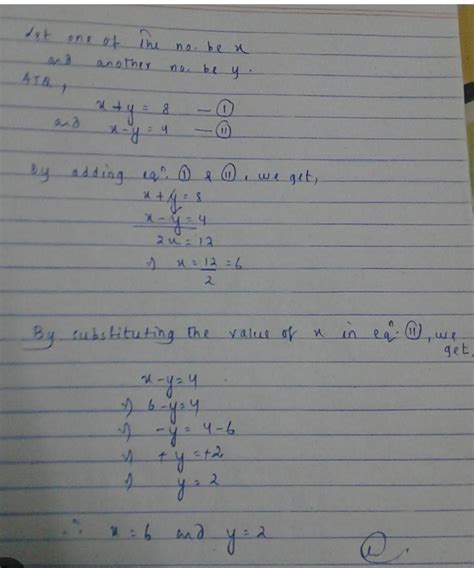 Let one of the no. be x
and another no. be y.
ATQ,
x+y = 8 — (I)
and x-y = 4 — (II)
By adding eqn. (I) & (II), we get,
x + y = 8
x - y = 4
2x = 12
⇒ x = 12/2 = 6
By substituting the value of x in eqn. (II), we
get,
x-y=4
⇒ 6-y=4
⇒ -y = 4-6
⇒ +y = +2
⇒ y = 2
∴ x = 6 and y = 2